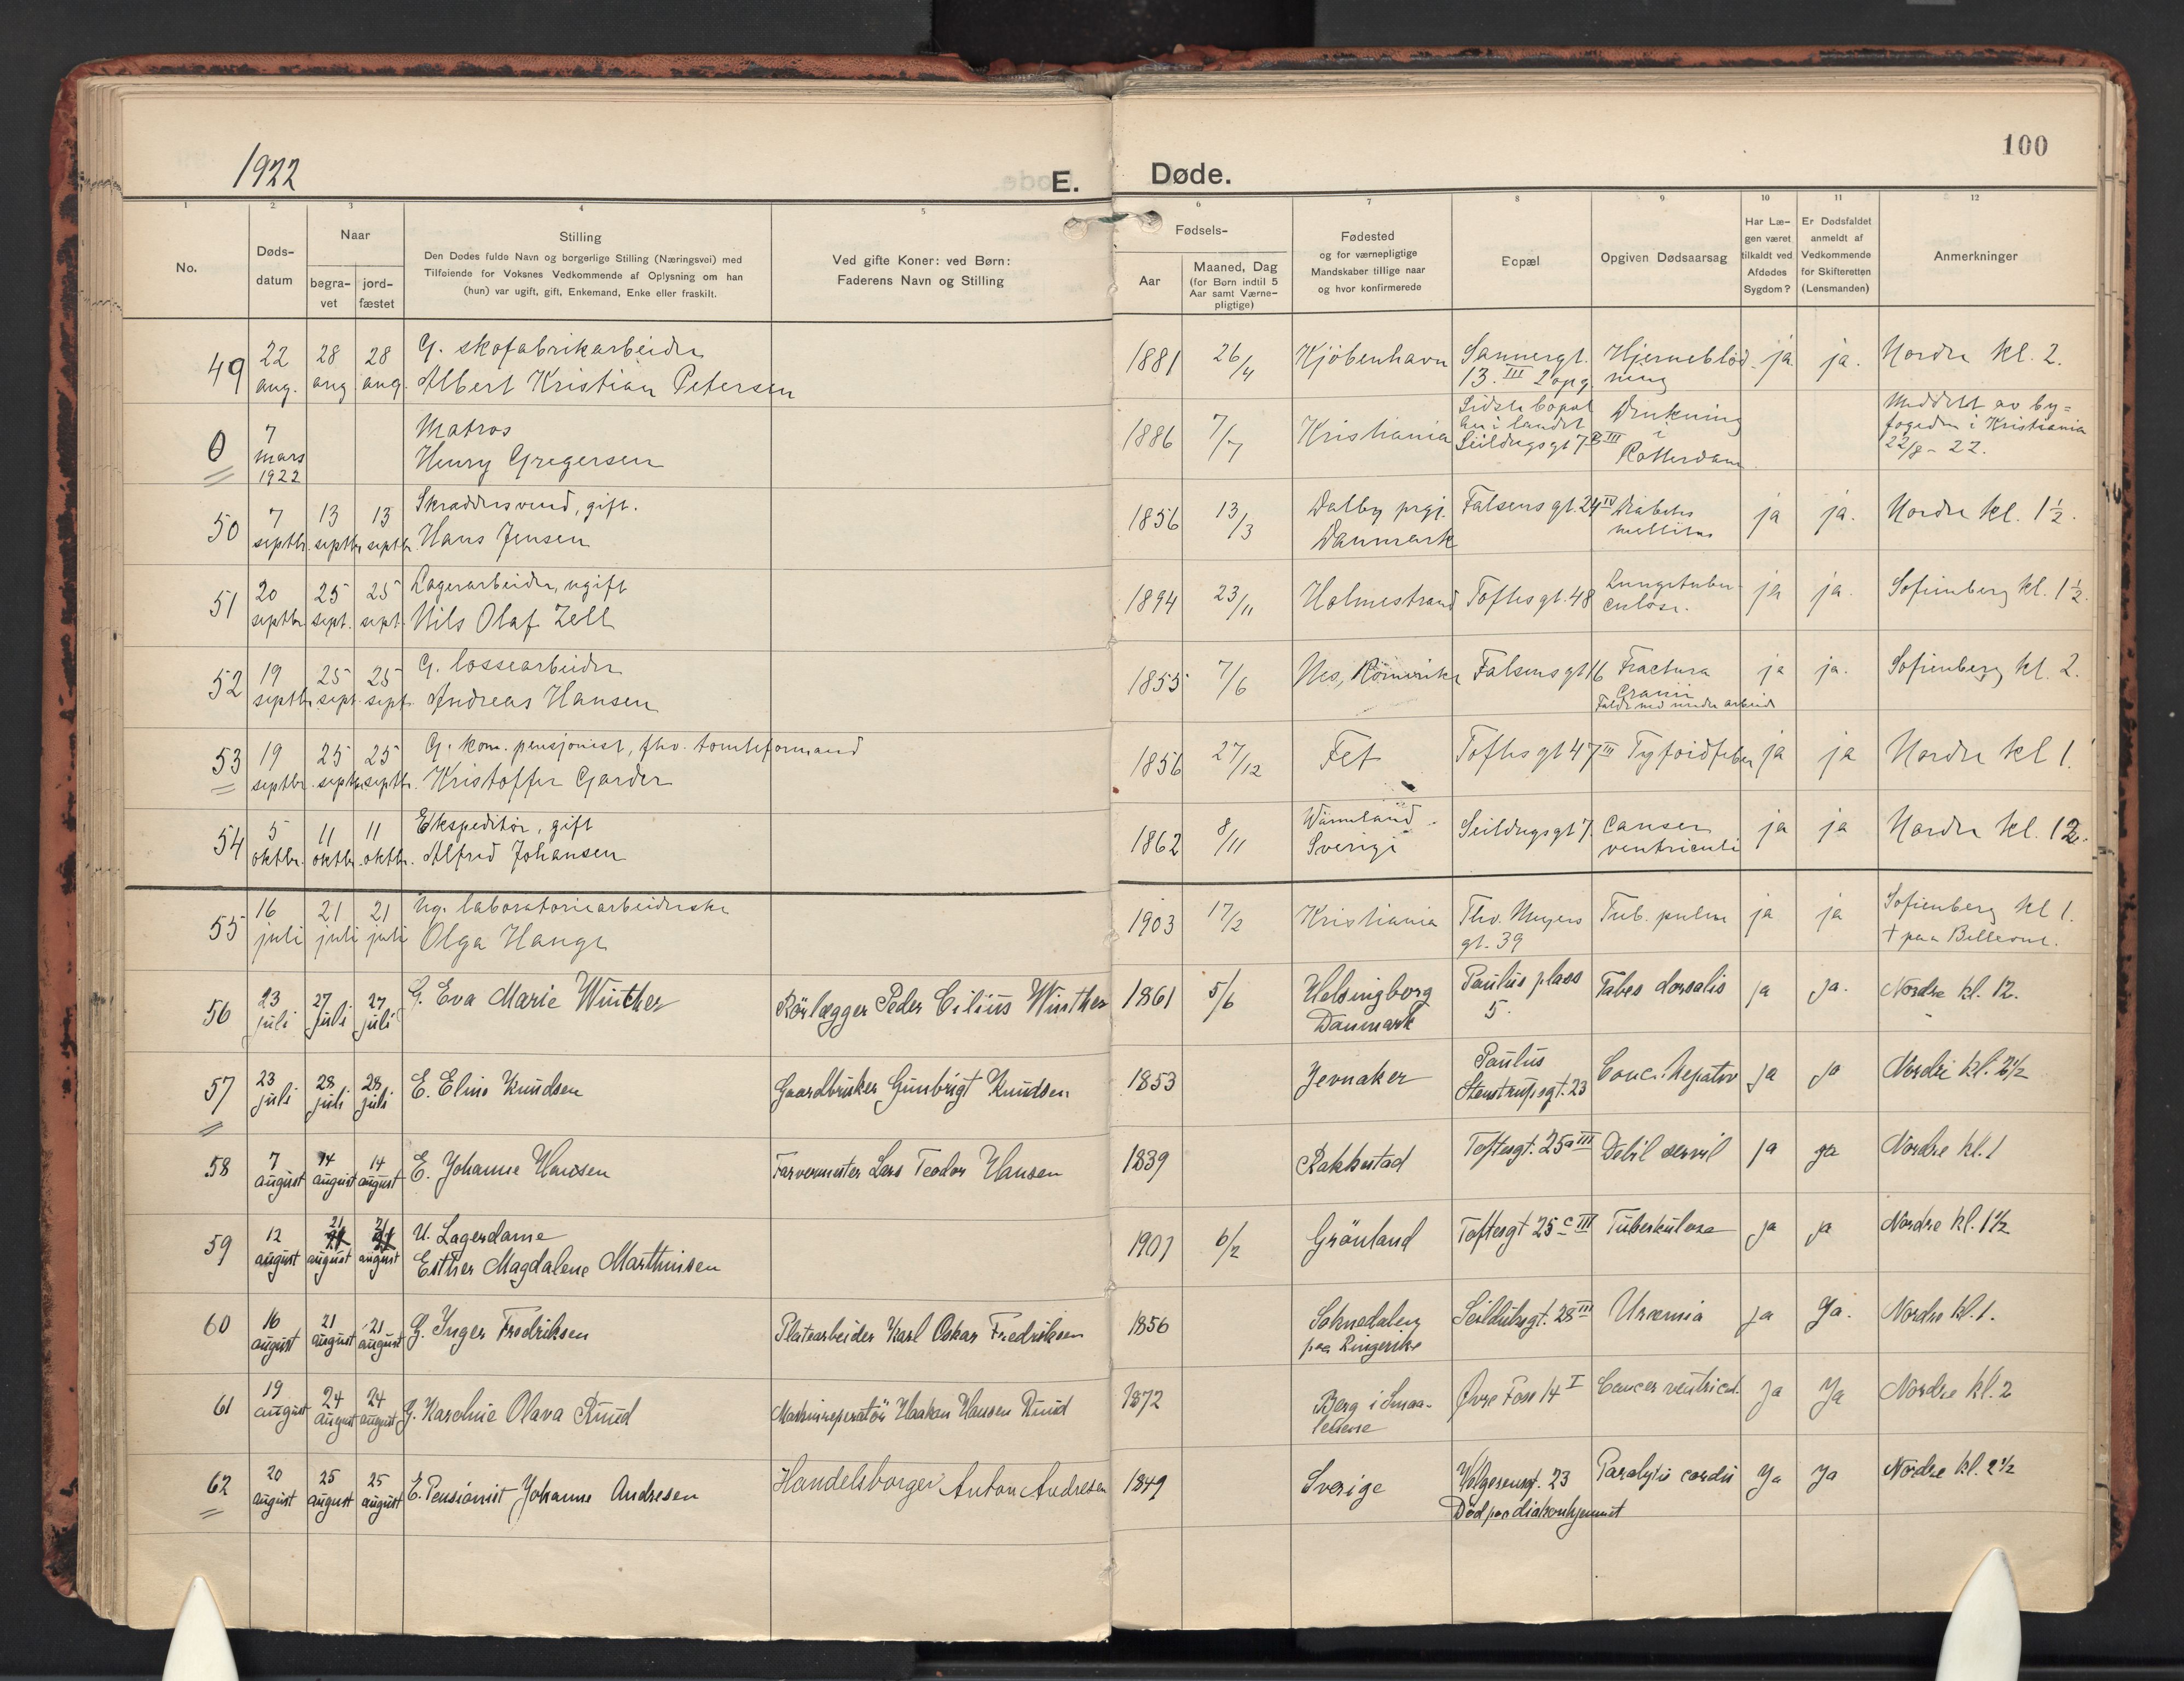 1922
E.
Døde.
100
1
2
3
4
5
6
7
8
9
10
11
12
No.
Døds-
datum
Naar
begra-
vet
jord-
fæstet
Stilling
Den Dødes fulde Navn og borgerlige Stilling (Næringsvei) med
Tilføiende for Voksnes Vedkommende af Oplysning om han
(hun) var ugift, gift, Enkemand, Enke eller fraskilt.
Ved gifte Koner: ved Børn:
Faderens Navn og Stilling
Fødsels-
Aar
Maaned, Dag
(for Børn indtil 5
Aar samt Værne-
pligtige)
Fødested
og for værnepligtige
Mandskaber tillige naar
og hvor konfirmerede
Bopæl
Opgiven Dødsaarsag
Har Læ-
gen været
tilkaldt ved
Afdødes
Sygdom?
Er Dødsfaldet
anmeldt af
Vedkommende
for Skifteretten
(Lensmanden)
Anmerkninger
49 22 aug. 28 aug 28 aug. G. skofabrikarbeider
Albert Kristian Petersen
1881 26/4 Kjöbenhavn Sannergt. 13. III 2 opg. Hjerneblødning ja ja. Nordre kl. 2.
0 7 mars 1922 Matros
Henry Gregersen
1886 7/7 Kristiania Sidste bopæl her i landet Seildugsgt 7 III Drukning i Rotterdam Meddelt av by=
fogden i Kristiania
22/8 - 22.
50 7 septbr. 13 septbr. 13 septbr. Skræddersvend, gift.
Hans Jensen
1856 13/3 Dalby prgj. Danmark Falsens gt. 24 IV Diabetes mellitus ja ja. Nordre kl. 1 1/2.
51 20 septbr. 25 sept. 25 sept. Lagerarbeider, ugift
Nils Olaf Zell
1894 23/11 Holmestrand Toftesgt. 48 Lungetuberculose. ja ja. Sofienberg kl. 1 1/2.
52 19 septbr. 25 sept. 25 sept. G. lossearbeider
Andreas Hansen
1855 7/6 Nes, Römerike Falsensgt 16 Fractura cranii
Faldt ned under arbeide ja ja. Sofienberg kl. 2.
53 19 septbr. 25 septbr. 25 septbr. G. kom. pensjonist, fhv. tomteformand
Kristoffer Garder
1856 27/12 Fet Toftesgt 47 III Tyfoidfeber ja ja Nordre kl 1.
54 5 oktbr. 11 oktbr. 11 oktbr. Ekspeditör, gift
Alfred Johansen
1862 8/11 Wärmland. Sverige Seildugsgt 7 Cancer ventriculi ja ja Nordre kl. 12.
55 16 juli 21 juli 21 juli Ug. laboratoriearbeiderske
Olga Hauge
1903 17/2 Kristiania Thv. Meyers gt. 39 Tub. pulm ja ja Sofienberg kl 1.
+ paa Billerud.
56 23 juli 27 juli 27 juli G. Eva Marie Winther Rörlægger Peder Cilius Winther 1861 5/6 Helsingborg Danmark Paulus plass 5. Tabes dorsalis ja ja. Nordre kl. 12.
57 23 juli 28 juli 28 juli E. Eline Knudsen Gaardbruker Gunbrigt Knudsen 1853 Jevnaker Paulus
Stenstrupsgt. 23 Canc. hepatis ja ja Nordre kl. 2 1/2
58 7 august 14 august 14 august E. Johanne Hansen Farvermester Lars Teodor Hansen 1839 Rakkestad Toftesgt. 25a III Debil senil ja ja Nordre kl. 1
59 12 august 21 august 21 august U. Lagerdame
Esther Magdalene Marthinsen
1901 6/2 Grönland Toftesgt 25 c III Tuberkulose ja ja Nordre kl. 1 1/2
60 16 august 21 august 21 august G. Inger Fredriksen Platearbeider Karl Oskar Fredriksen 1856 Soknedalen
paa Ringerike Seilduksgt. 28 III Uræmia ja ja. Nordre kl. 1.
61 19 august 24 august 24 august G. Karoline Olava Ruud Maskinreperatör Haakon Hansen Ruud 1872 Berg i Smaa-
lenene Øvre Foss 14 I Cancer ventricul. ja ja Nordre kl. 2
62 20 august 25 august 25 august E. Pensionist Johanne Andresen Handelsborger Anton Andresen 1849 Sverige Helgesensgt. 23
Död paa diakonhjemmet Paralysis cordis ja ja Nordre kl. 2 1/2